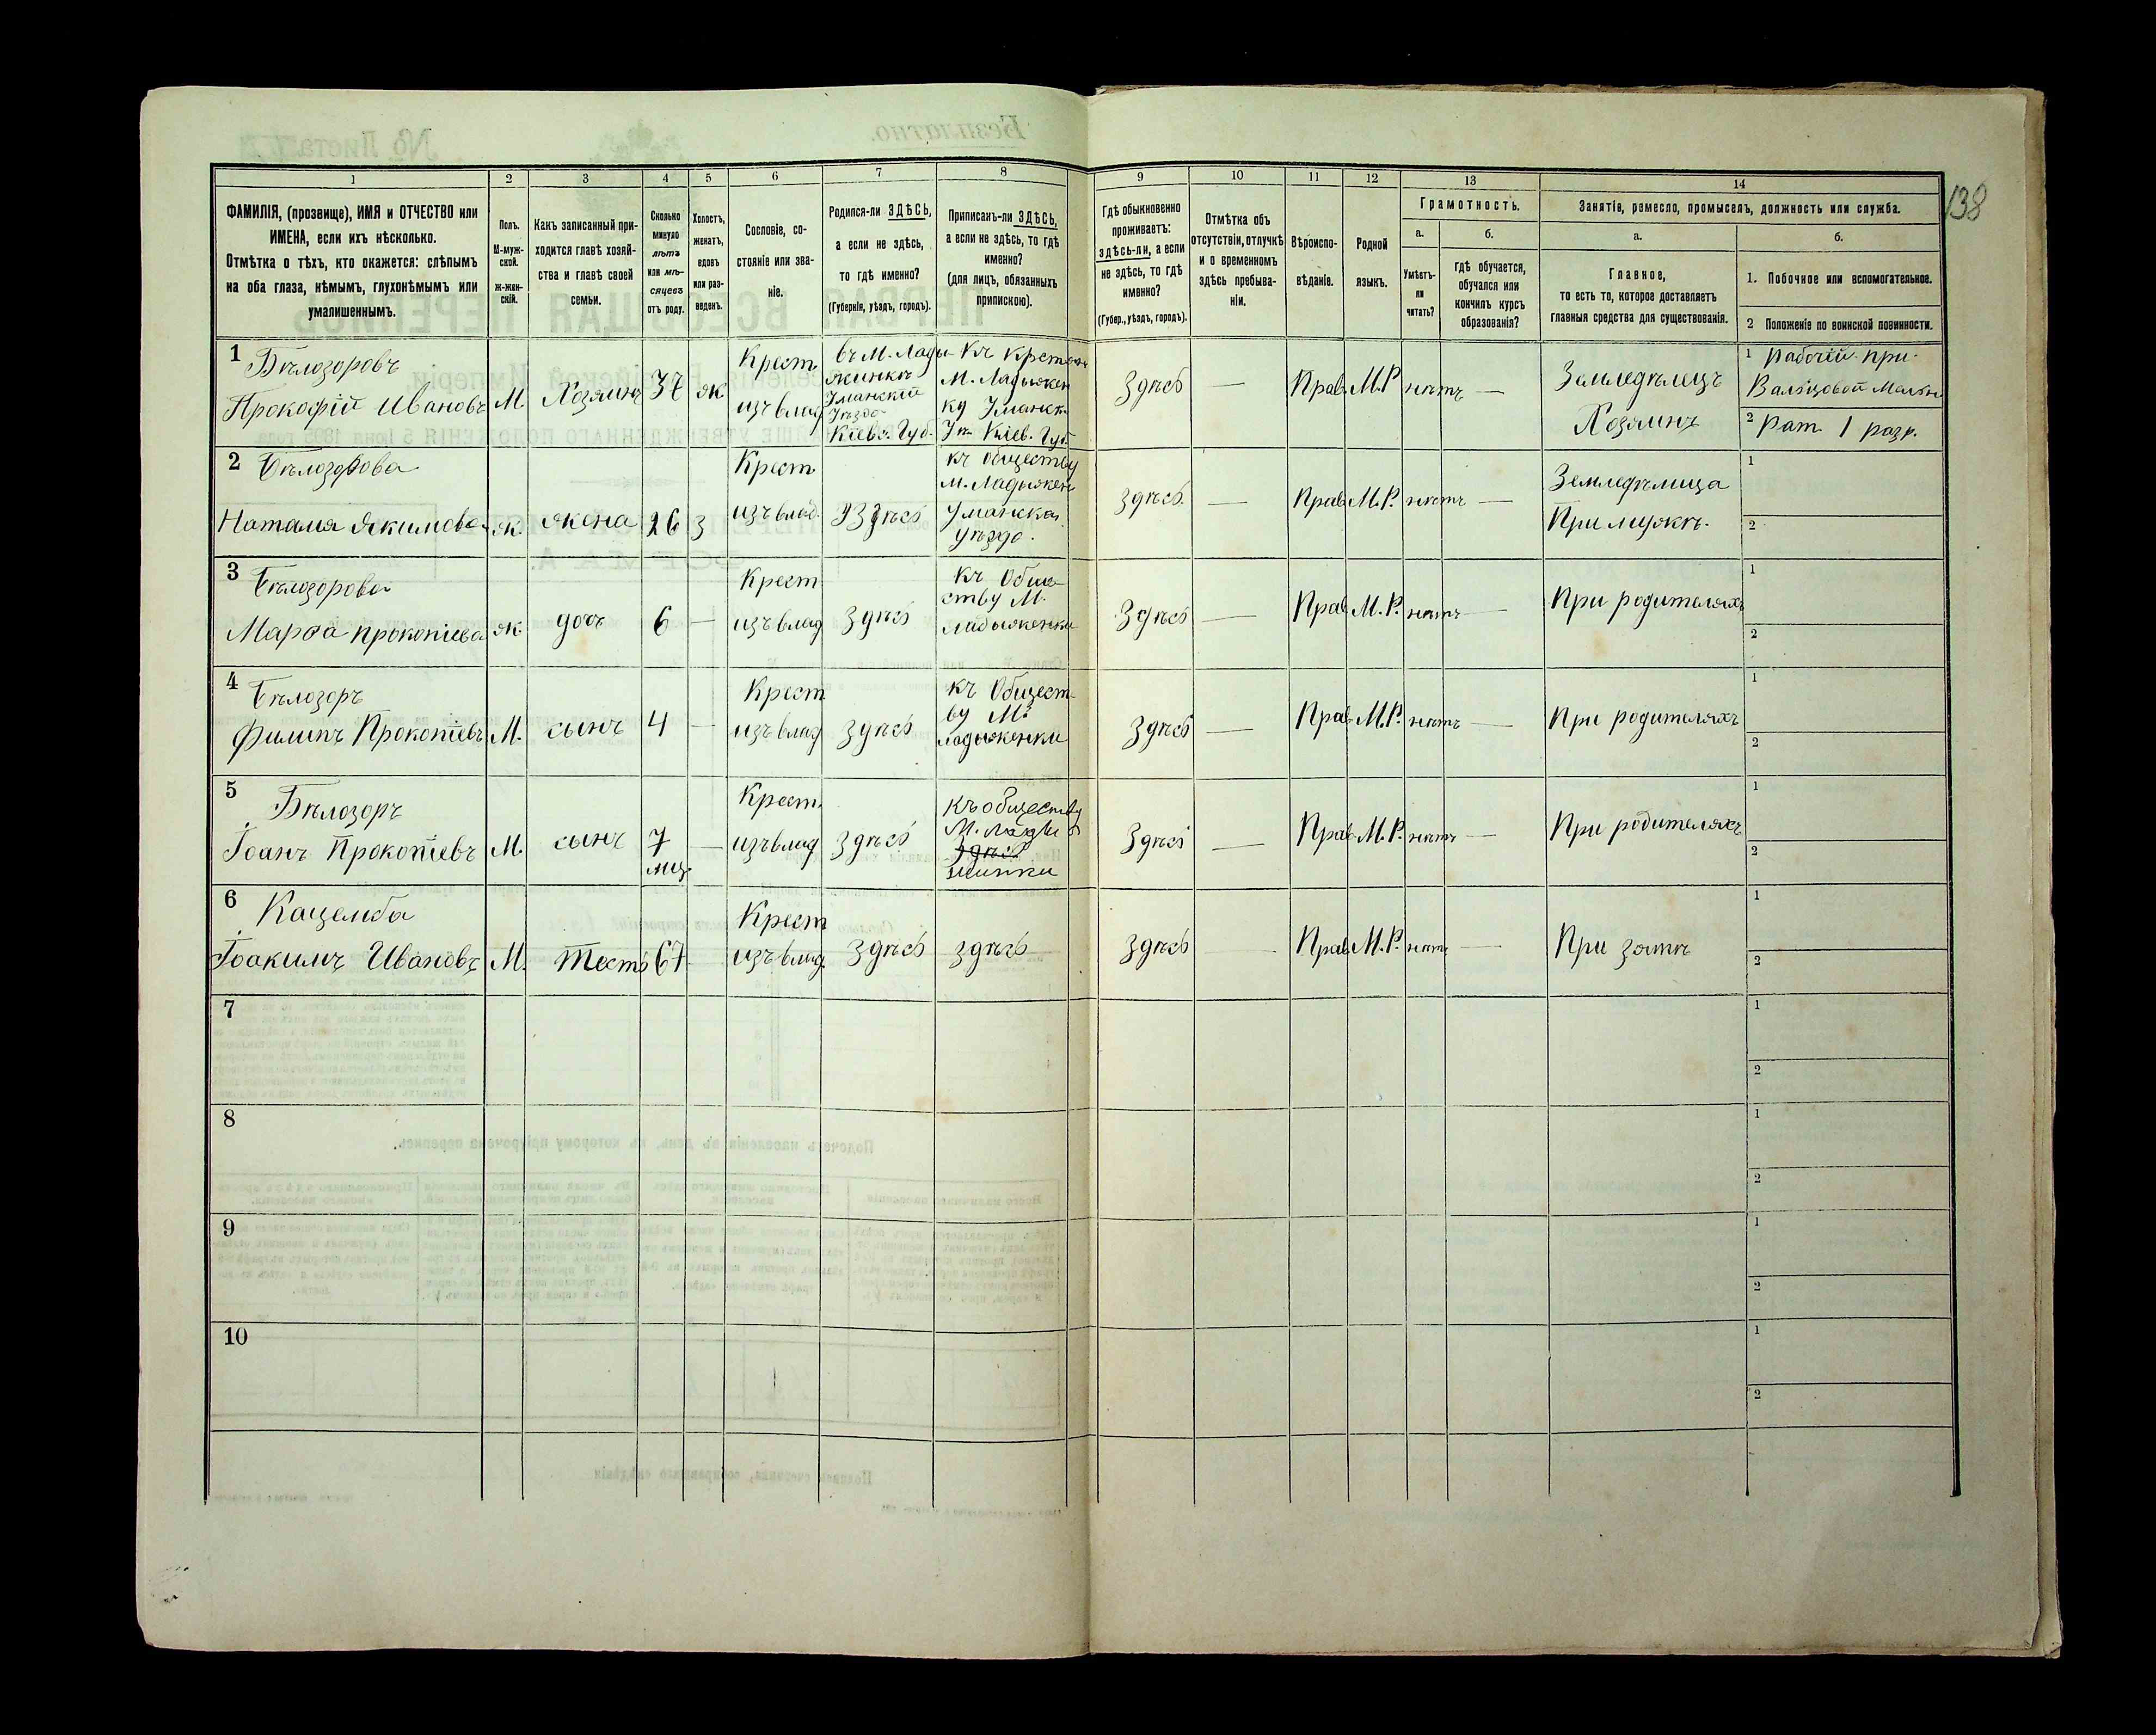 138
1 2 3 4 5 6 7 8 9 10 11 12 13 14
ФАМИЛІЯ, (прозвище), ИМЯ и ОТЧЕСТВО или
ИМЕНА, если ихъ нѣсколько.
Отмѣтка о тѣхъ, кто окажется: слѣпымъ
на оба глаза, нѣмымъ, глухонѣмымъ или
умалишеннымъ.
Полъ.
М-муж-
ской.
ж-жен-
скій.
Какъ записанный при-
ходится главѣ хозяй-
ства и главѣ своей
семьи.
Сколько
минуло
лѣтъ
или мѣ-
сяцевъ
отъ роду.
Холостъ,
женатъ,
вдовъ
или раз-
веденъ.
Сословіе, со-
стояніе или зва-
ніе.
Родился-ли ЗДѢСЬ,
а если не здѣсь,
то гдѣ именно?
(Губернія, уѣздъ, городъ).
Приписанъ-ли ЗДѢСЬ,
а если не здѣсь, то гдѣ
именно?
(для лицъ, обязанныхъ
припискою).
Гдѣ обыкновенно
проживаетъ:
здѣсь-ли, а если
не здѣсь, то гдѣ
именно?
(Губер., уѣздъ, городъ).
Отмѣтка объ
отсутствіи, отлучкѣ
и о временномъ
здѣсь пребыва-
ніи.
Вѣроиспо-
вѣданіе.
Родной
языкъ.
Грамотность.
а.
Умѣетъ-
ли
читать?
б.
гдѣ обучается,
обучался или
кончилъ курсъ
образованія?
Занятіе, ремесло, промыселъ, должность или служба.
а.
Главное,
то есть то, которое доставляетъ
главныя средства для существованія.
б.
1. Побочное или вспомогательное.
2 Положеніе по воинской повинности.
1 Бѣлозоровъ
Прокофій Ивановъ
М
Хозяинъ
ж
Крест
изъ влад
въ М. Лады
жинкѣ
Уманскій
Уѣзда
Кіевс. Губ.
Къ Крестьян
М. Ладыжен
ку Уманск.
Уѣ Кіев. Губ.
Здѣсь — Прав. М.Р нѣтъ —
Земледѣлецъ
Хозяинъ
1 Рабочій при
Вальцовой Мельн
2 Рат. 1 разр.
2 Бѣлозорова
Наталия Якимова
ж. жена 26 З
Крест
изъ влад.
Здѣсь
къ Обществу
М. Ладыжен
Уманска
Уѣзда.
здѣсь — Прав М.Р. нѣтъ —
Земледѣлица
При мужѣ.
1
2
3 Бѣлозорова
Марфа Прокопіева
ж дочь 6 —
Крест
изъ влад
здѣсь
къ Обще
ству М.
Ладыженки
Здѣсь — Прав М.Р. нѣтъ — При родителяхъ
1
2
4 Бѣлозоръ
Филипъ Прокопіевъ
М. сынъ 4 —
Крест
изъ влад
здѣсь
къ Общест
ву М.
Ладыженки
Здѣсь — Прав М.Р. нѣтъ — При родителяхъ
1
2
5 Бѣлозоръ
Іоанъ Прокопіевъ
М. сынъ 7
мц.
—
Крест
изъ влад
здѣсь
къ обществу
М. Лады
здѣсь
жинки
Здѣсь — Прав М.Р. нѣтъ — При родителяхъ
1
2
6 Кацемба
Іоакимъ Ивановъ
М. Тесть 67
Крест
изъ влад.
здѣсь здѣсь
здѣсь — Прав М.Р. нѣтъ — При зятѣ
1
2
7
1
2
8
1
2
9
1
2
10
1
2